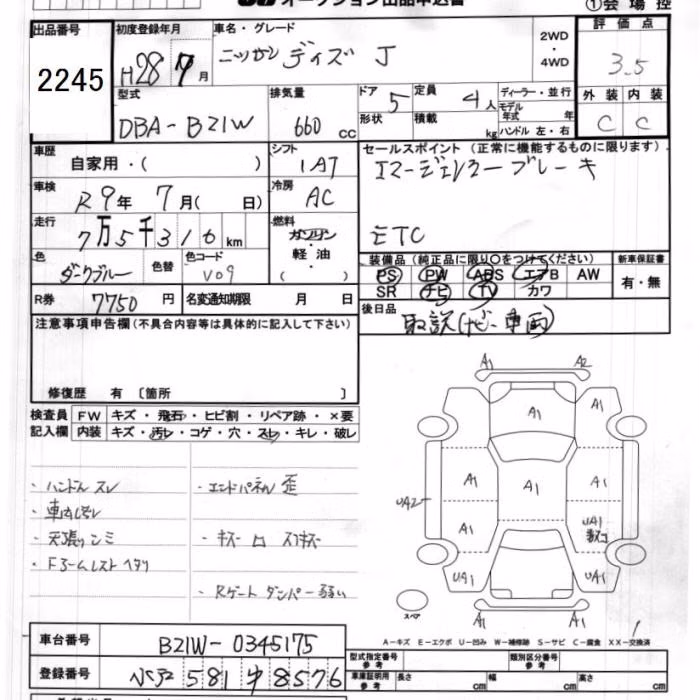 オークション出品申込書 ①会場控
出品番号 2245
初度登録年月 H28 7月
車名・グレード ニッサン デイズ J
2WD・4WD
評価点 3.5
外装 内装
C C
型式 DBA-B21W
排気量 660 cc
ドア 5 形状
定員 4人 積載 kg
ディーラー・並行
モデル年式 年
ハンドル 左・右
車歴 自家用・( )
シフト 1A7
車検 R9年 7月( 日)
冷房 AC
走行 7万5千310km
燃料 ガソリン・軽油 ( )
色 ダークブルー 色替
色コード V09
R券 7750円
名変通知期限 月 日
セールスポイント (正常に機能するものに限ります)
エマージェンシーブレーキ
ETC
装備品 (純正品に限り○をつけてください)
PS PW ABS エアB AW
SR ナビ TV カワ
新車保証書 有・無
後日品 取説(ナビ・車両)
注意事項申告欄 (不具合内容等は具体的に記入して下さい)
修復歴 有 〔箇所 〕
検査員記入欄
FW キズ・飛石・ヒビ割・リペア跡・×要
内装 キズ・汚レ・コゲ・穴・スレ・キレ・破レ
・ハンドルスレ
・車内汚レ
・天張リシミ
・Fアームレストヘタリ
・エンドパネル歪
・キズ
・Rゲートダンパー弱い
A1 A2
A1 A1
A1 A1 A1
UA2
A1 UA1
UA1 UA1
A1 A1
スペア
A-キズ E-エクボ U-凹み W-補修跡 S-サビ C-腐食 XX-交換済
車台番号 B21W-0345175
登録番号 581 8576
型式指定番号 参考
類別区分番号 参考
車庫証明用 参考 長さ cm 幅 cm 高さ cm